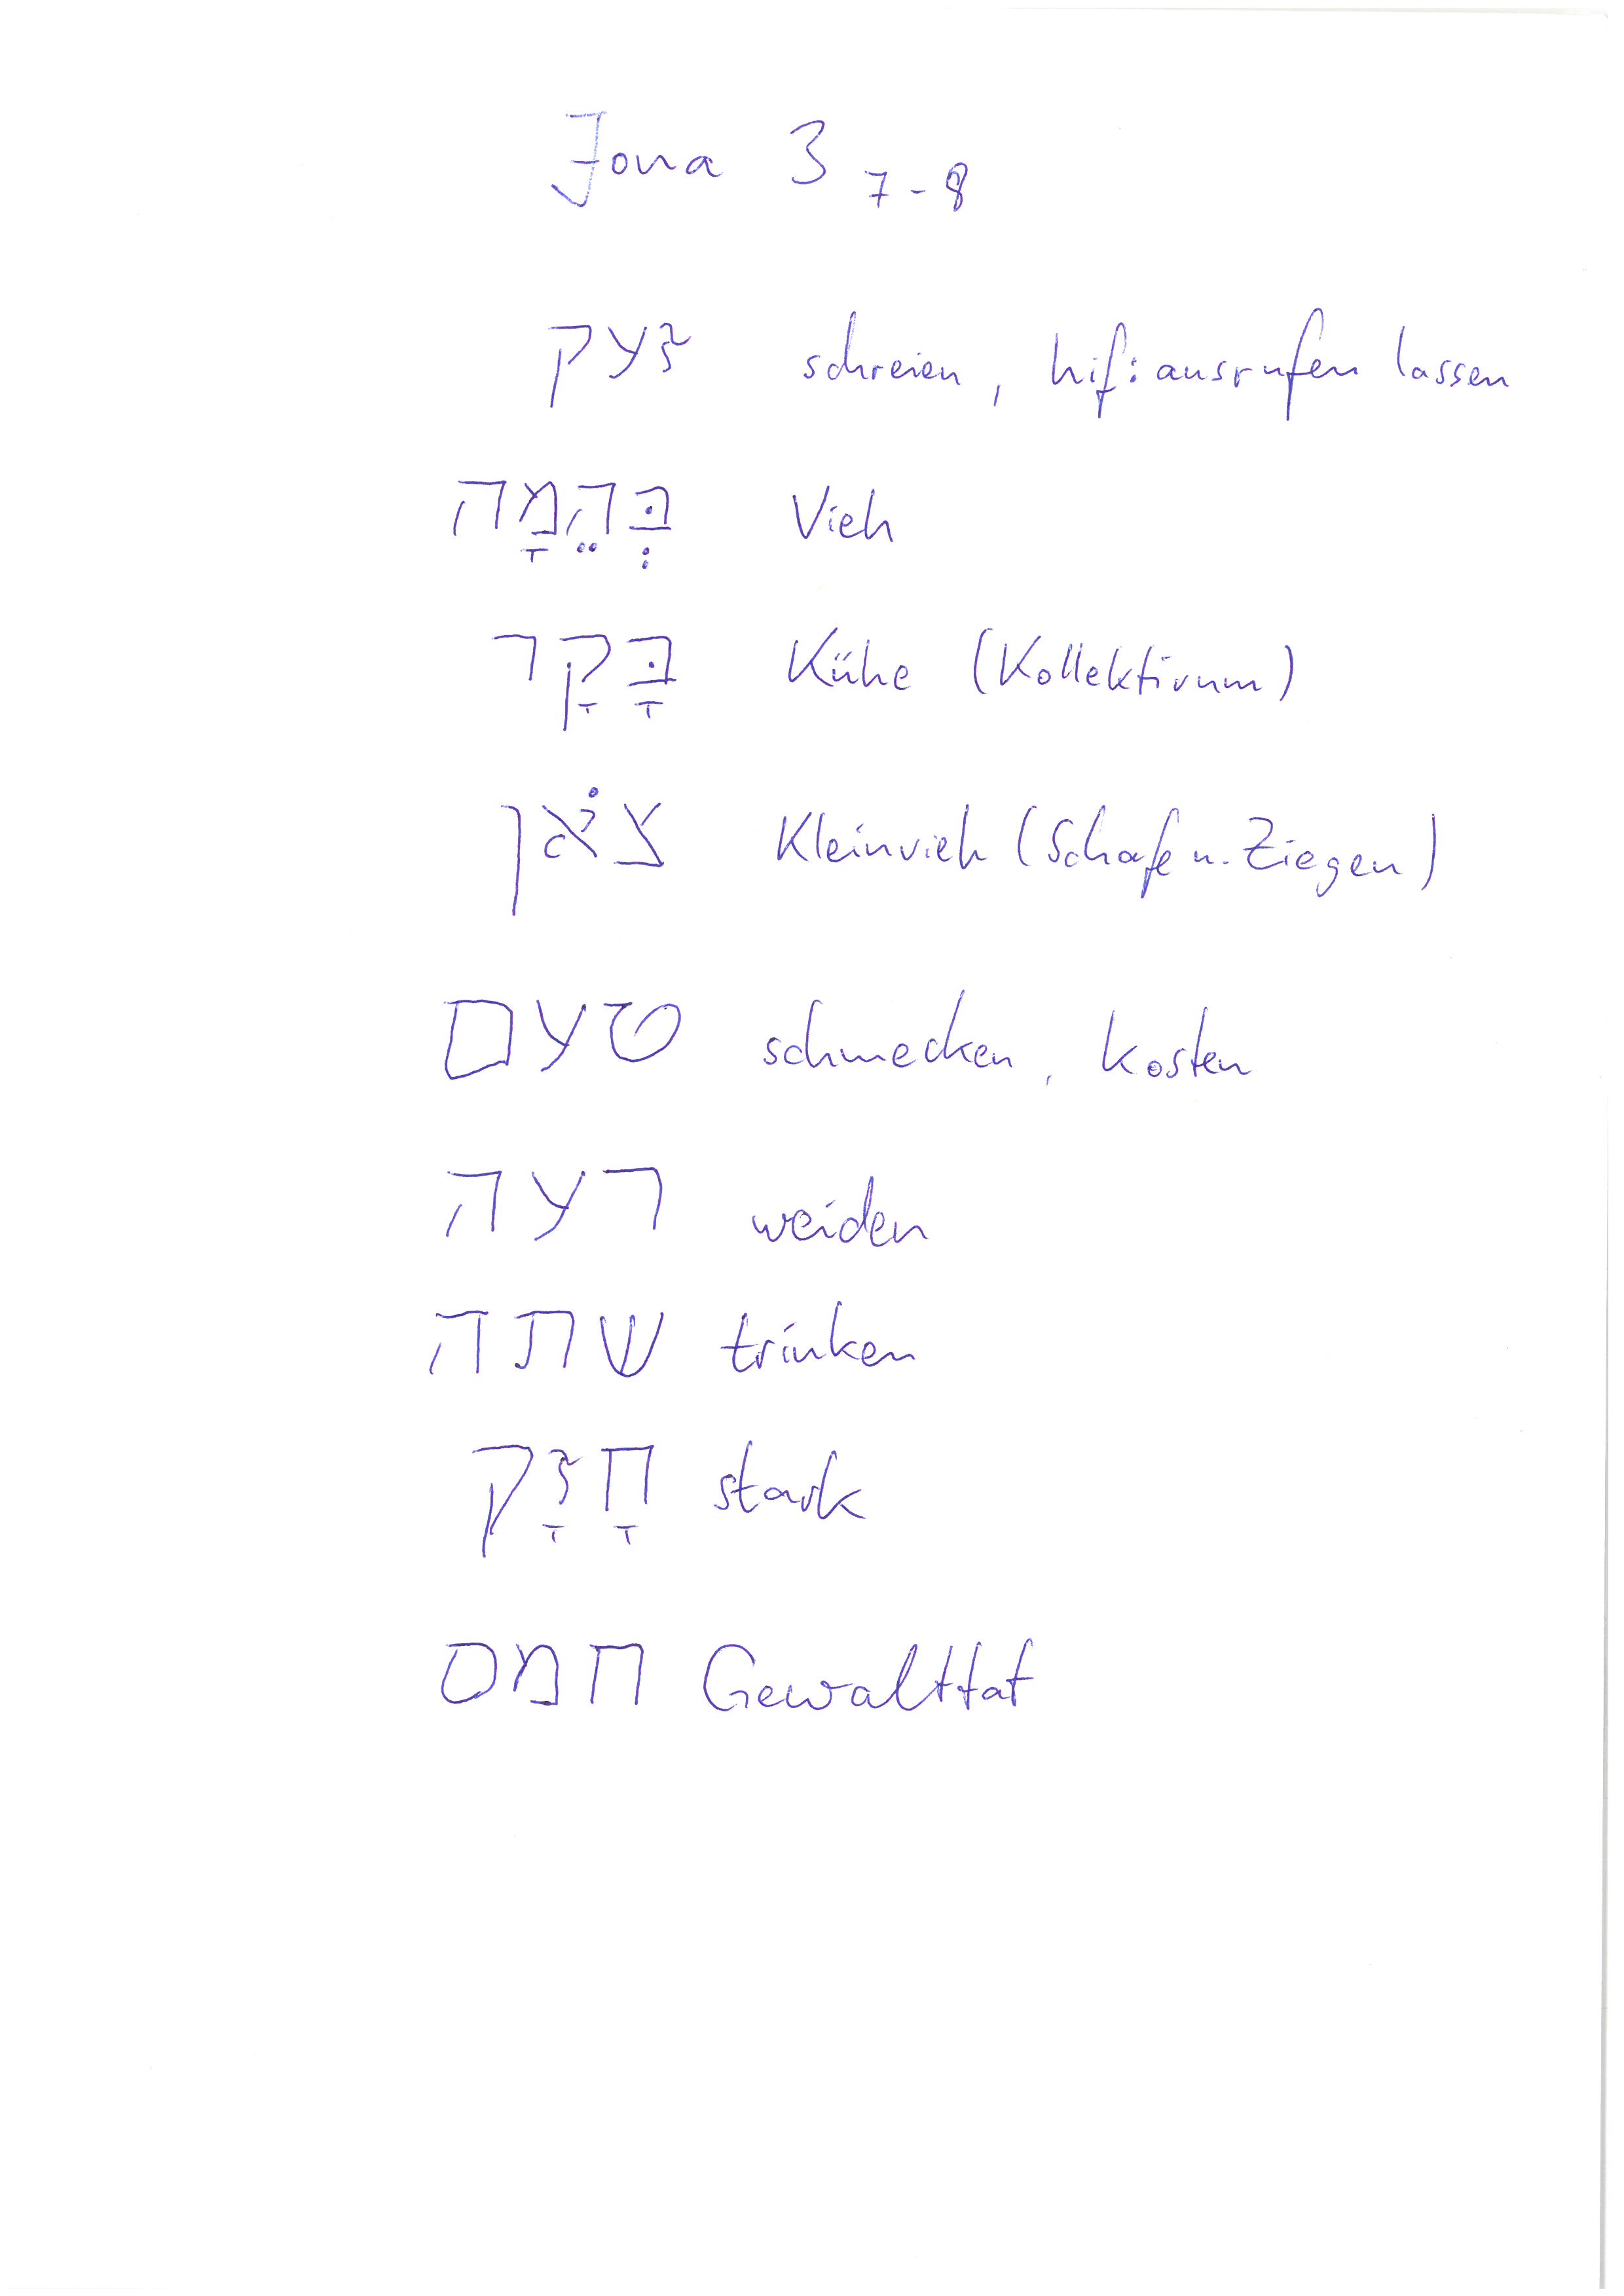 Jona 3 7-8
זעק schreien, hif: ausrufen lassen
בְּהֵמָה Vieh
בָּקָר Kühe (Kollektivum)
צֹאן Kleinvieh (Schafe u. Ziegen)
טעם schmecken, kosten
רעה weiden
שתה trinken
חָזָק stark
חמס Gewalttat